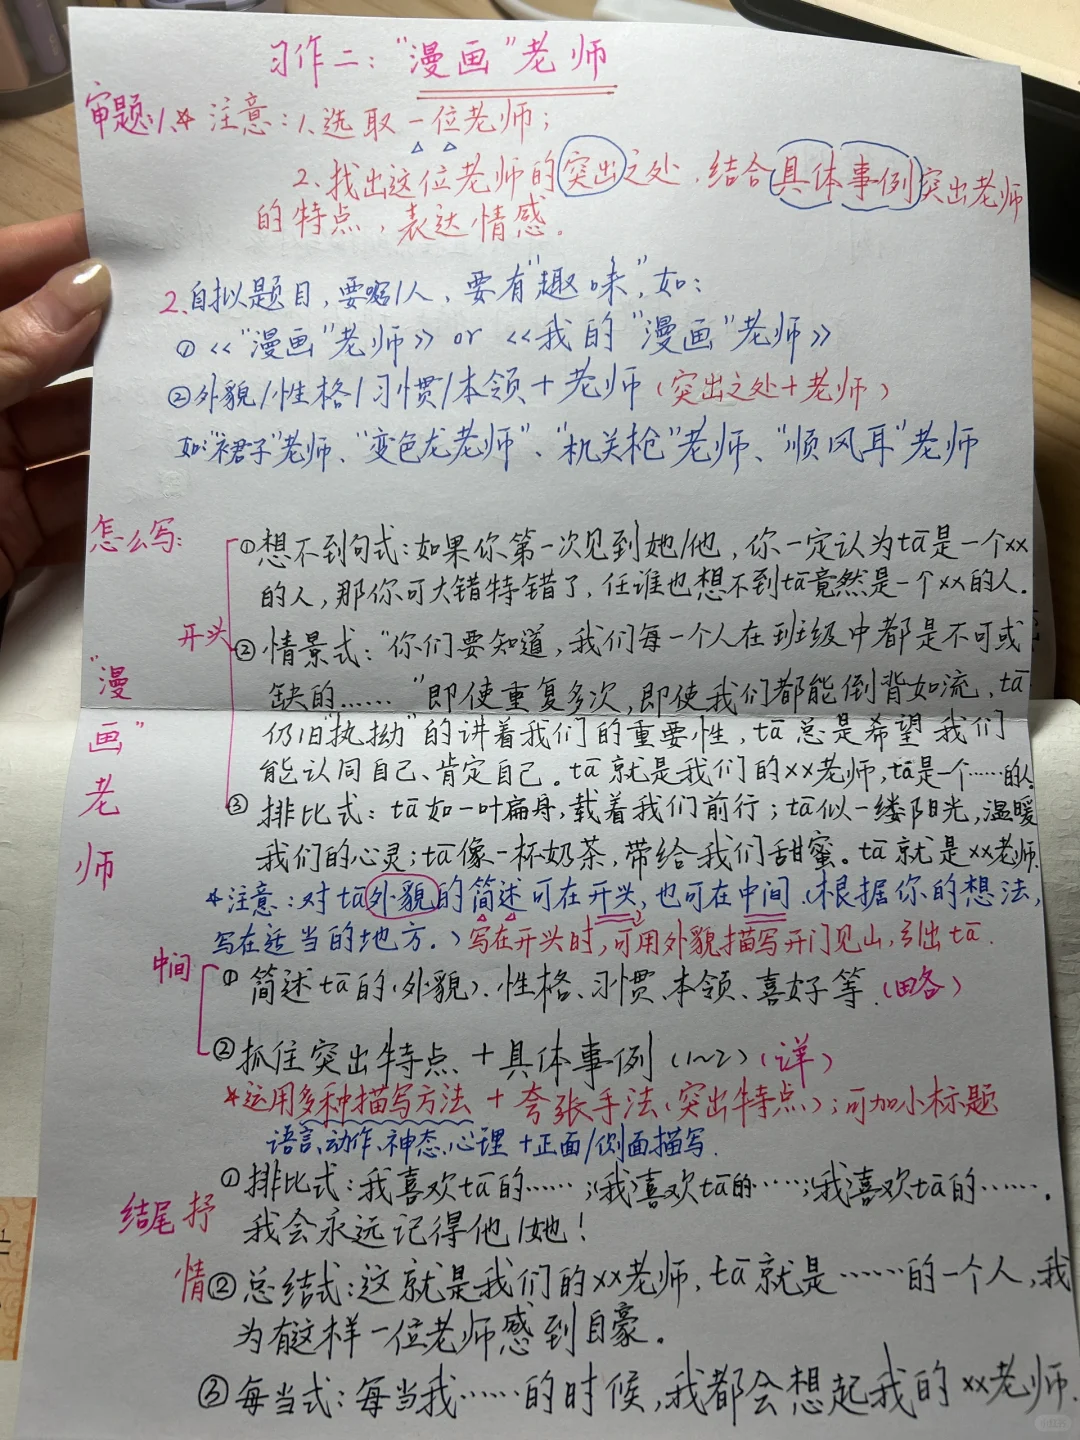 习作二："漫画"老师
审题:1、☆ 注意：1、选取一位老师；
2、找出这位老师的突出之处，结合具体事例突出老师
的特点，表达情感。
2、自拟题目，要吸引人，要有"趣味"，如：
①《"漫画"老师》or《我的"漫画"老师》
②外貌/性格/习惯/本领＋老师（突出之处＋老师）
如:"裙子"老师、"变色龙老师"、"机关枪"老师、"顺风耳"老师
怎么写：
"漫画"老师
开头
①想不到句式：如果你第一次见到她/他，你一定认为tā是一个xx
的人，那你可大错特错了，任谁也想不到tā竟然是一个xx的人．
②情景式："你们要知道，我们每一个人在班级中都是不可或
缺的……"即使重复多次，即使我们都能倒背如流，tā
仍旧"执拗"的讲着我们的重要性，tā总是希望我们
能认同自己、肯定自己。tā就是我们的xx老师，tā是一个……的人。
③排比式：tā如一叶扁舟，载着我们前行；tā似一缕阳光，温暖
我们的心灵；tā像一杯奶茶，带给我们甜蜜。tā就是xx老师．
*注意：对tā外貌的简述可在开头，也可在中间．（根据你的想法，
写在适当的地方．）写在开头时，可用外貌描写开门见山，引出tā．
中间
①简述tā的（外貌）、性格、习惯、本领、喜好等．（略）
②抓住突出特点＋具体事例（1~2）（详）
*运用多种描写方法＋夸张手法（突出特点）；可加小标题
语言、动作、神态、心理＋正面/侧面描写．
结尾抒情
①排比式：我喜欢tā的……；我喜欢tā的……；我喜欢tā的……．
我会永远记得他/她！
②总结式：这就是我们的xx老师，tā就是……的一个人，我
为有这样一位老师感到自豪。
③每当式：每当我……的时候，我都会想起我的xx老师．